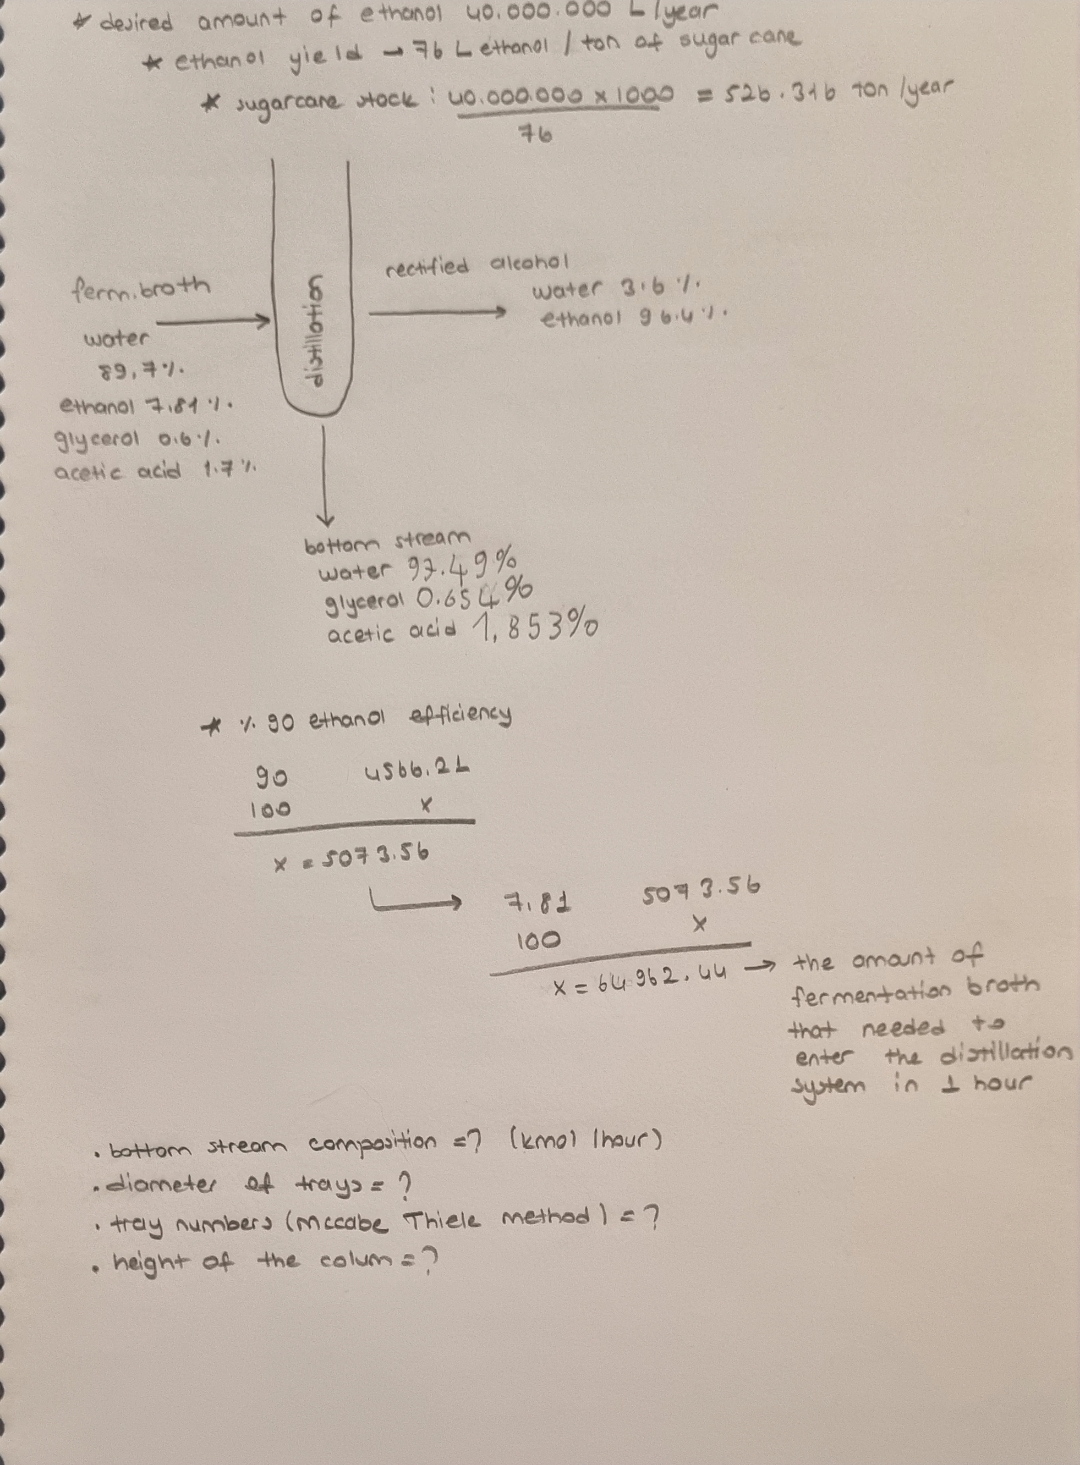 * desired amount of ethanol 40.000.000 L/year
* ethanol yield → 76 L ethanol / ton of sugar cane
* sugarcane stock : 40.000.000 x 1000 = 526.316 ton/year
76
distillation
ferm. broth
water
89,7%
ethanol 7,81%
glycerol 0.6%
acetic acid 1.7%
rectified alcohol
water 3.6%
ethanol 96.4%
bottom stream
water 97.49%
glycerol 0.654%
acetic acid 1,853%
* % 90 ethanol efficiency
90 4566.2L
100 x
x = 5073.56
7,81 5073.56
100 x
x = 64962.44 → the amount of
fermentation broth
that needed to
enter the distillation
system in 1 hour
. bottom stream composition =? (kmol /hour)
. diameter of trays = ?
. tray numbers (mccabe Thiele method) = ?
. height of the colum = ?